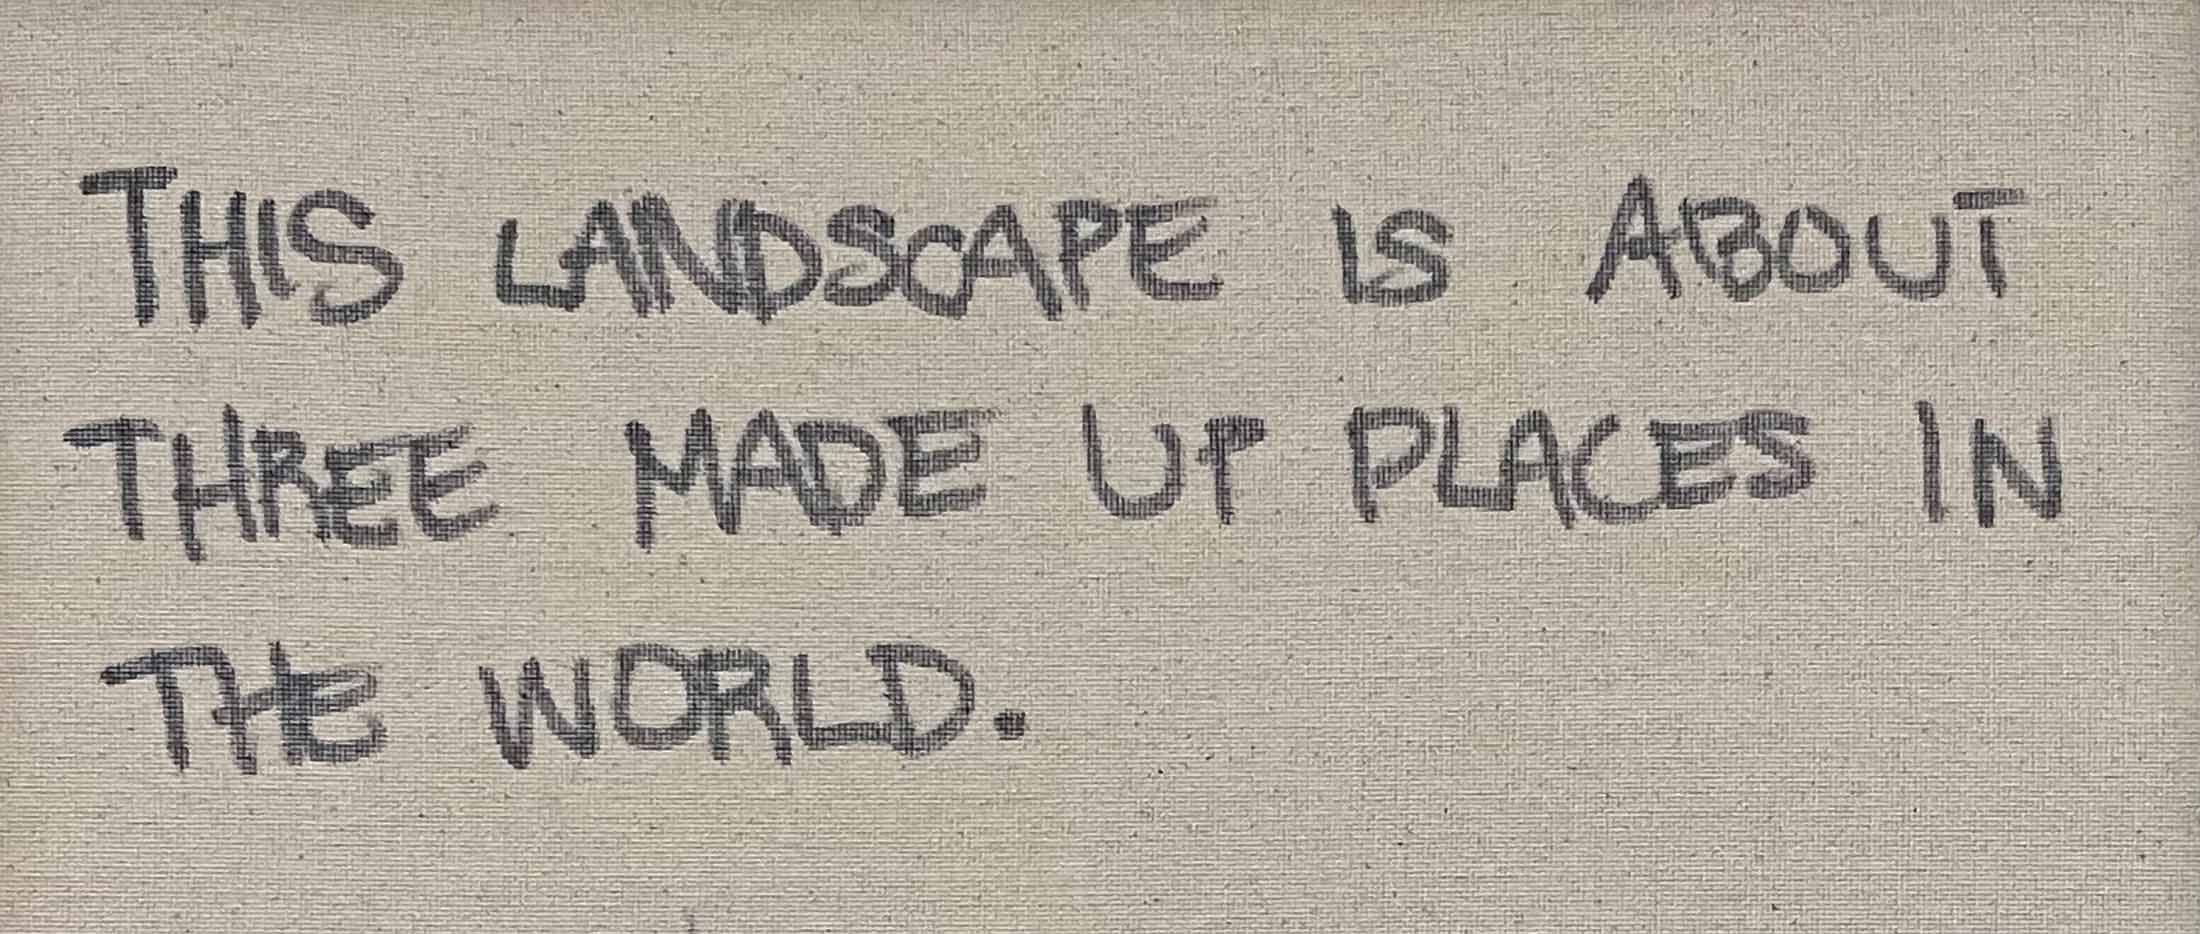 THIS LANDSCAPE IS ABOUT
THREE MADE UP PLACES IN
THE WORLD.